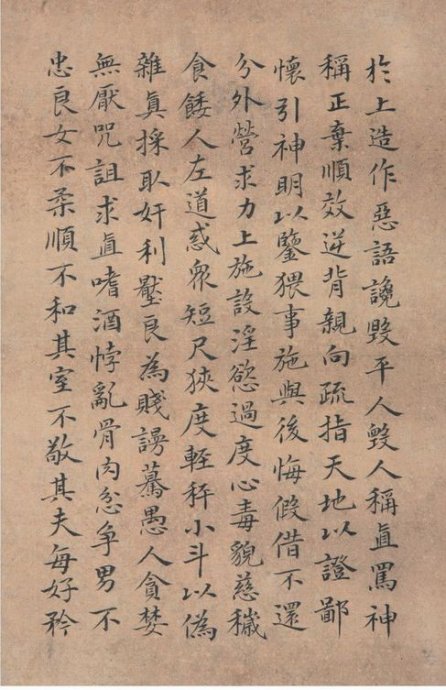 於上造作惡語讒毀平人毀人稱直罵神
稱正棄順效逆背親向疏指天地以證鄙
懷引神明以鑒猥事施與後悔假借不還
分外營求力上施設淫慾過度心毒貌慈穢
食餧人左道惑眾短尺狹度輕秤小斗以偽
雜真採取奸利壓良為賤謾驀愚人貪婪
無厭咒詛求直嗜酒悖亂骨肉忿爭男不
忠良女不柔順不和其室不敬其夫每好矜